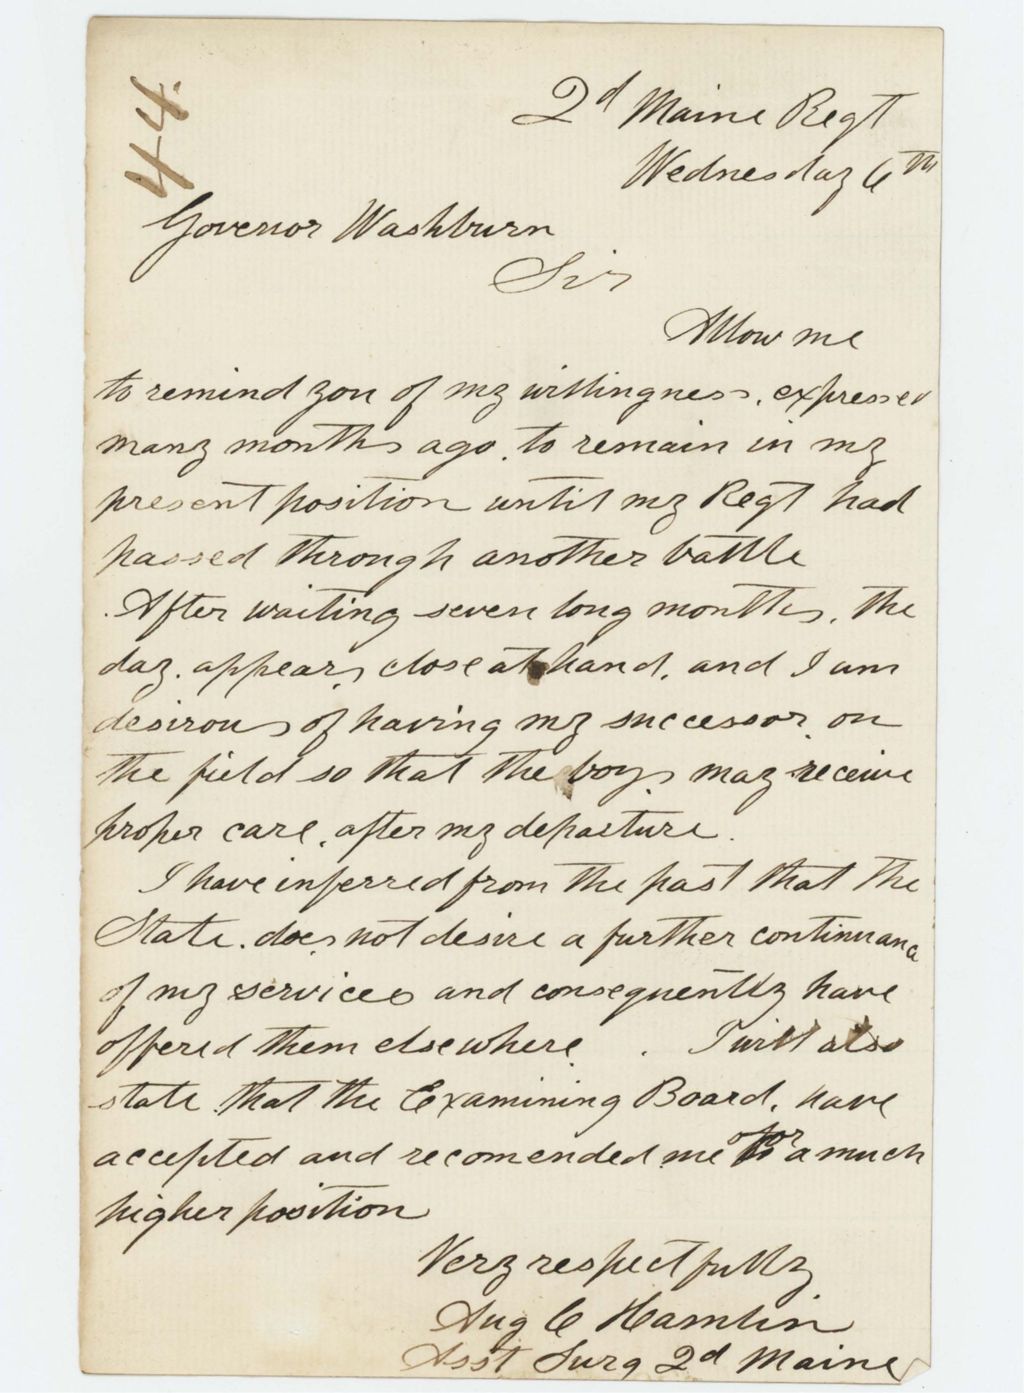 44.
2d Maine Regt
Wednesday 6th
Governor Washburn
Sir
Allow me
to remind you of my willingness, expressed
many months ago, to remain in my
present position until my Regt had
passed through another battle
After waiting seven long months, the
day, appears close at hand, and I am
desirous of having my successor on
the field so that the boys may receive
proper care, after my departure.
I have inferred from the past that the
State does not desire a further continuance
of my services and consequently have
offered them elsewhere. I will also
state that the Examining Board, have
accepted and recomended me for a much
higher position
Very respectfully
Aug C Hamlin
Asst Surg 2d Maine